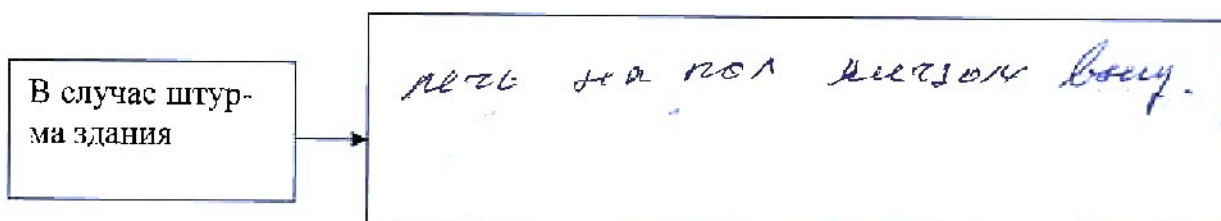 В случае штур-
ма здания
лечь на пол лицом вниз.